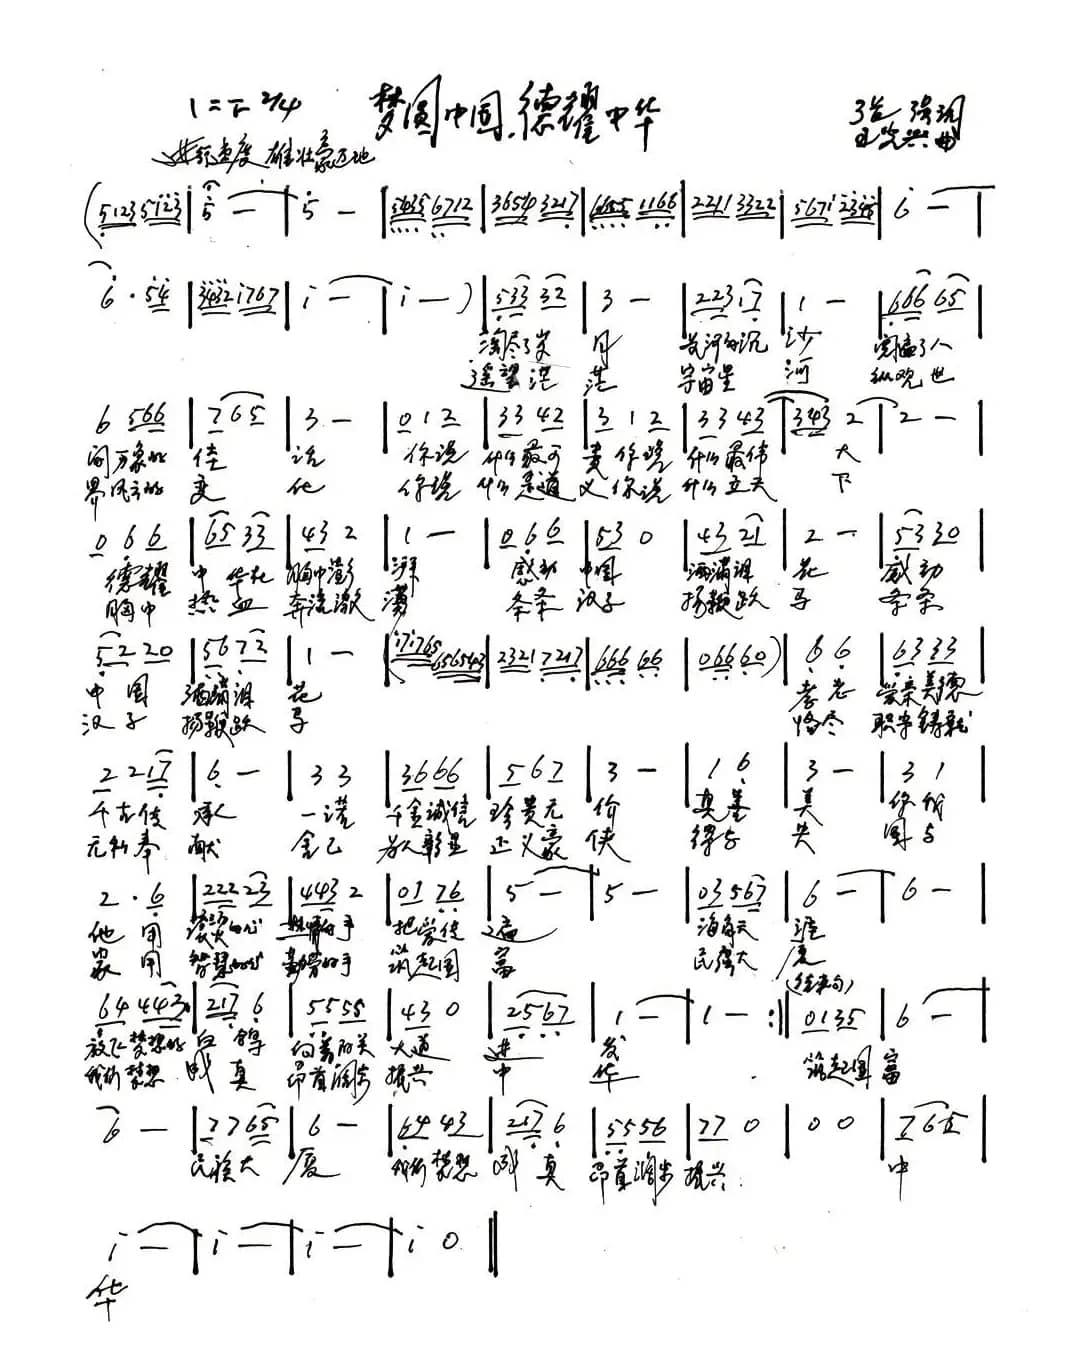 1=F 2/4 梦圆中国.德耀中华 张 强词
速度 雄壮豪迈地 曲
(5123 5123 | 5 — | 5 — | 5435 6712 | 3654 3217 | 6655 1166 | 2211 3322 | 5671 2345 | 6 — |
6 · 54 | 3432 1767 | i — | i — ) | 533 32 | 3 — | 2231 7 | 1 — | 666 65 |
淘尽了岁 月 长河的沉 沙 阅尽了人
遥望茫 茫 宇宙星 河 纵观世
6 566 | 765 | 3 — | 0 1 2 | 33 42 | 3 1 2 | 33 43 | 343 2 | 2 — |
间 万象的 佳 话 你说 什么最可 贵 你说 什么最伟 大
界 风云的 变 化 你说 什么是道 义 你说 什么立天 下
0 6 6 | 65 33 | 43 2 | 1 — | 0 6 6 | 53 0 | 43 21 | 2 — | 53 30 |
德耀 中 华在 胸中澎 湃 感动 中国 洒满泪 花 感动
胸中 热 血 奔流激 涌 条条 汉子 扬鞭跃 马 条条
52 20 | 5672 | 1 — | (171765 656543 | 2321 7217 | 666 66 | 0666 0) | 6 6 | 6333 |
中 国 洒满泪 花 孝老 爱亲美德
汉 子 扬鞭跃 马 恪尽 职守铸就
2 217 | 6 — | 3 3 | 3666 | 567 | 3 — | 1 6 | 3 — | 3 1 |
千古传 承 一诺 千金诚信 珍贵无 价 真善 美 你们
无私奉 献 舍己 救人彰显 正义豪 侠 得与 失 国与
2 · 6 | 222 23 | 443 2 | 01 76 | 5 — | 5 — | 03 567 | 6 — | 6 — |
他 用 滚烫的心 热情的手 把爱传 遍 海角天 涯
家 用 智慧的心 勤劳的手 筑起国 富 民强大 厦
(结束句)
64 443 | 217 6 | 5555 | 43 0 | 2567 | 1 — | 1 — :‖ 0135 | 6 — |
放飞梦想的 白 鸽 向着阳关 大道 进 发 筑起国 富
我们梦想 成 真 昂首阔步 振兴 中 华
6 — | 7765 | 6 — | 64 43 | 217 6 | 5556 | 77 0 | 0 0 | 765 |
民族大 厦 我们梦想 成 真 昂首阔步 振兴 中
i — | i — | i — | i 0 ‖
华